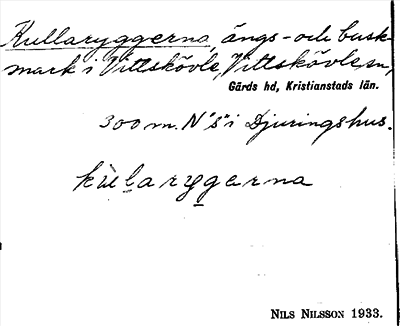 Kullaryggerna, ängs- och busk-
mark i Vittskövle, Vittskövle sn,
Gärds hd, Kristianstads län.
300 m. N "s" i Djuringshus.
kùlaryggarna
NILS NILSSON 1933.